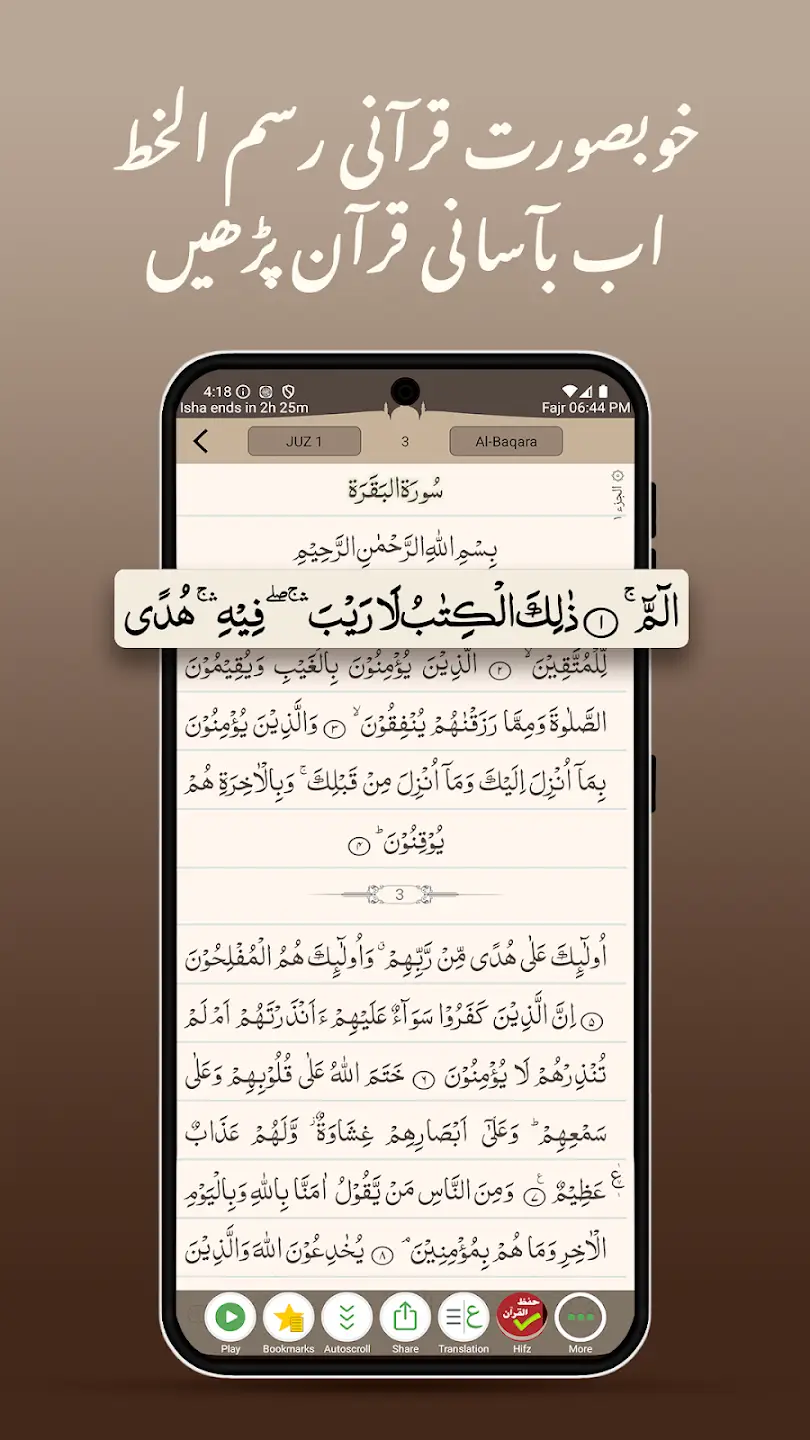 خوبصورت قرآنی رسم الخط
اب بآسانی قرآن پڑھیں
4:18
Isha ends in 2h 25m
Fajr 06:44 PM
JUZ 1
3
Al-Baqara
سُورَةُ الْبَقَرَة
الجزء ١
بِسْمِ اللّٰهِ الرَّحْمٰنِ الرَّحِيْمِ
الٓمّٓ ۚ ۝١ ذٰلِكَ الْكِتٰبُ لَا رَيْبَ ۛۚ ۖ فِيْهِ ۛۚ هُدًى
لِّلْمُتَّقِيْنَ ۙ ۝٢ الَّذِيْنَ يُؤْمِنُوْنَ بِالْغَيْبِ وَيُقِيْمُوْنَ
الصَّلٰوةَ وَمِمَّا رَزَقْنٰهُمْ يُنْفِقُوْنَ ۙ ۝٣ وَالَّذِيْنَ يُؤْمِنُوْنَ
بِمَآ اُنْزِلَ اِلَيْكَ وَمَآ اُنْزِلَ مِنْ قَبْلِكَ ۚ وَبِالْاٰخِرَةِ هُمْ
يُوْقِنُوْنَ ؕ ۝۴
3
اُولٰٓئِكَ عَلٰى هُدًى مِّنْ رَّبِّهِمْ ۙ وَاُولٰٓئِكَ هُمُ الْمُفْلِحُوْنَ
۝۵ اِنَّ الَّذِيْنَ كَفَرُوْا سَوَآءٌ عَلَيْهِمْ ءَاَنْذَرْتَهُمْ اَمْ لَمْ
تُنْذِرْهُمْ لَا يُؤْمِنُوْنَ ۝۶ خَتَمَ اللّٰهُ عَلٰى قُلُوْبِهِمْ وَعَلٰى
سَمْعِهِمْ ؕ وَعَلٰٓى اَبْصَارِهِمْ غِشَاوَةٌ ۫ وَّلَهُمْ عَذَابٌ
عَظِيْمٌ ۝۷ وَمِنَ النَّاسِ مَنْ يَّقُوْلُ اٰمَنَّا بِاللّٰهِ وَبِالْيَوْمِ
ع
الْاٰخِرِ وَمَا هُمْ بِمُؤْمِنِيْنَ ۘ ۝۸ يُخٰدِعُوْنَ اللّٰهَ وَالَّذِيْنَ
ع
حفظ
القرآن
Play Bookmarks Autoscroll Share Translation Hifz More